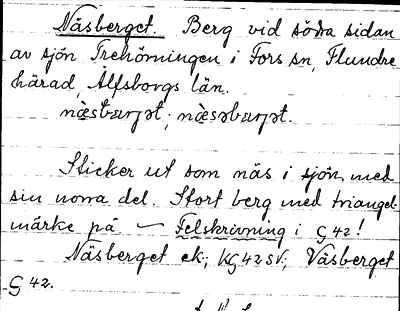 Näsberget. Berg vid södra sidan
av sjön Trehörningen i Fors sn, Flundre
härad, Älfsborgs län.
Sticker ut som näs i sjön med
sin norra del. Stort berg med triangel-
märke på — Felskrivning i G 42!
Näsberget ek; KG 42 SV; Väsberget
G 42.